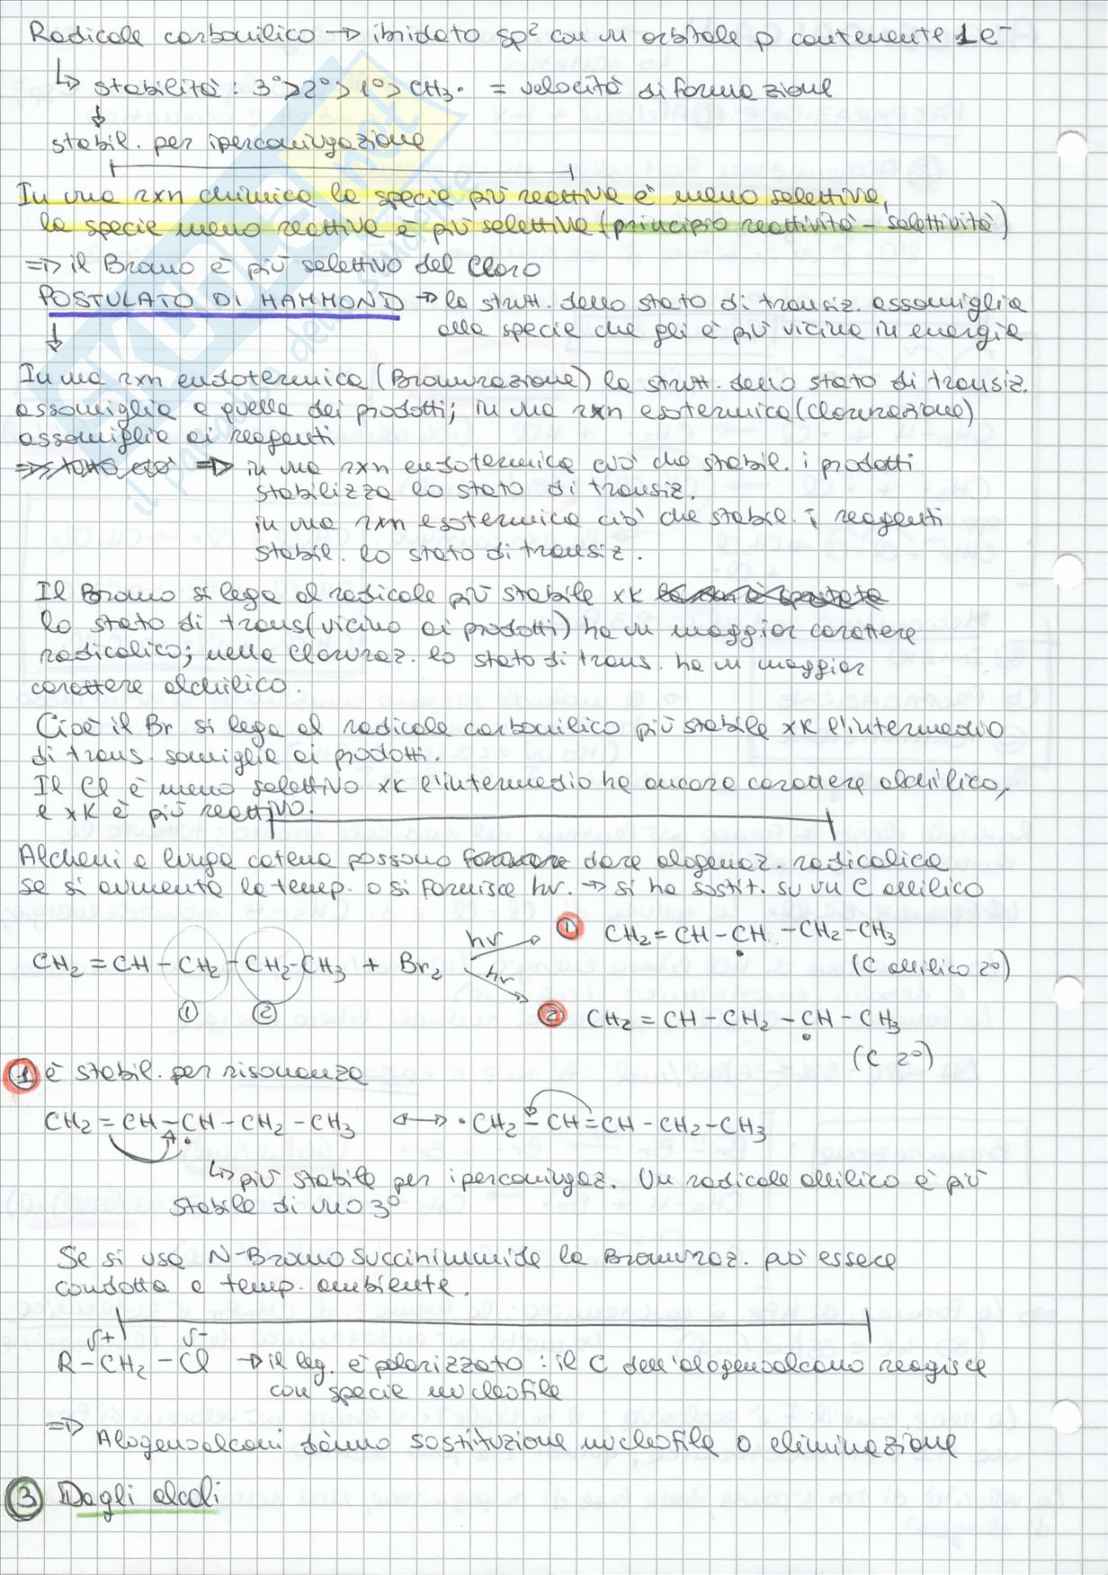 Radicale carbonilico → ibridato sp² con un orbitale p contenente 1e⁻
↳ stabilità: 3°>2°>1°>CH₃· = velocità di formazione
↓
stabil. per iperconiugazione
In una rxn chimica la specie più reattiva è meno selettiva,
la specie meno reattiva è più selettiva (principio reattività - selettività)
⇒ il Bromo è più selettivo del Cloro
POSTULATO DI HAMMOND → la strutt. dello stato di transiz. assomiglia
alla specie che gli è più vicina in energia
↓
In una rxn endotermica (Bromurazione) la strutt. dello stato di transiz.
assomiglia a quella dei prodotti; in una rxn esotermica (clorurazione)
assomiglia ai reagenti
⇒ in una rxn endotermica ciò che stabil. i prodotti
stabilizza lo stato di transiz.
in una rxn esotermica ciò che stabil. i reagenti
stabil. lo stato di transiz.
Il Bromo si lega al radicale più stabile xk
lo stato di trans (vicino ai prodotti) ha un maggior carattere
radicalico; nella cloruraz. lo stato di trans. ha un maggior
carattere alchilico.
Cioè il Br si lega al radicale carbonilico più stabile xk l'intermedio
di trans. somiglia ai prodotti.
Il Cl è meno selettivo xk l'intermedio ha ancora carattere alchilico,
e xk è più reattivo.
Alcheni a lunga catena possono dare alogenaz. radicalica
se si aumenta la temp. o si fornisce hν. → si ha sostit. su un C allilico
hν ① CH₂=CH-CH-CH₂-CH₃
·
CH₂=CH-CH₂-CH₂-CH₃ + Br₂ (C allilico 2°)
hν
① ② ② CH₂=CH-CH₂-CH-CH₃
·
(C 2°)
① è stabil. per risonanza
CH₂=CH-CH-CH₂-CH₃ ↔ ·CH₂-CH=CH-CH₂-CH₃
↳ più stabile per iperconiugaz. Un radicale allilico è più
stabile di uno 3°
Se si usa N-Bromosuccinimmide la Bromuraz. può essere
condotta a temp. ambiente.
δ+ δ-
R-CH₂-Cl → il leg. è polarizzato: il C dell'alogenoalcano reagisce
con specie nucleofile
⇒ Alogenoalcani danno sostituzione nucleofila o eliminazione
③ Dagli alcoli